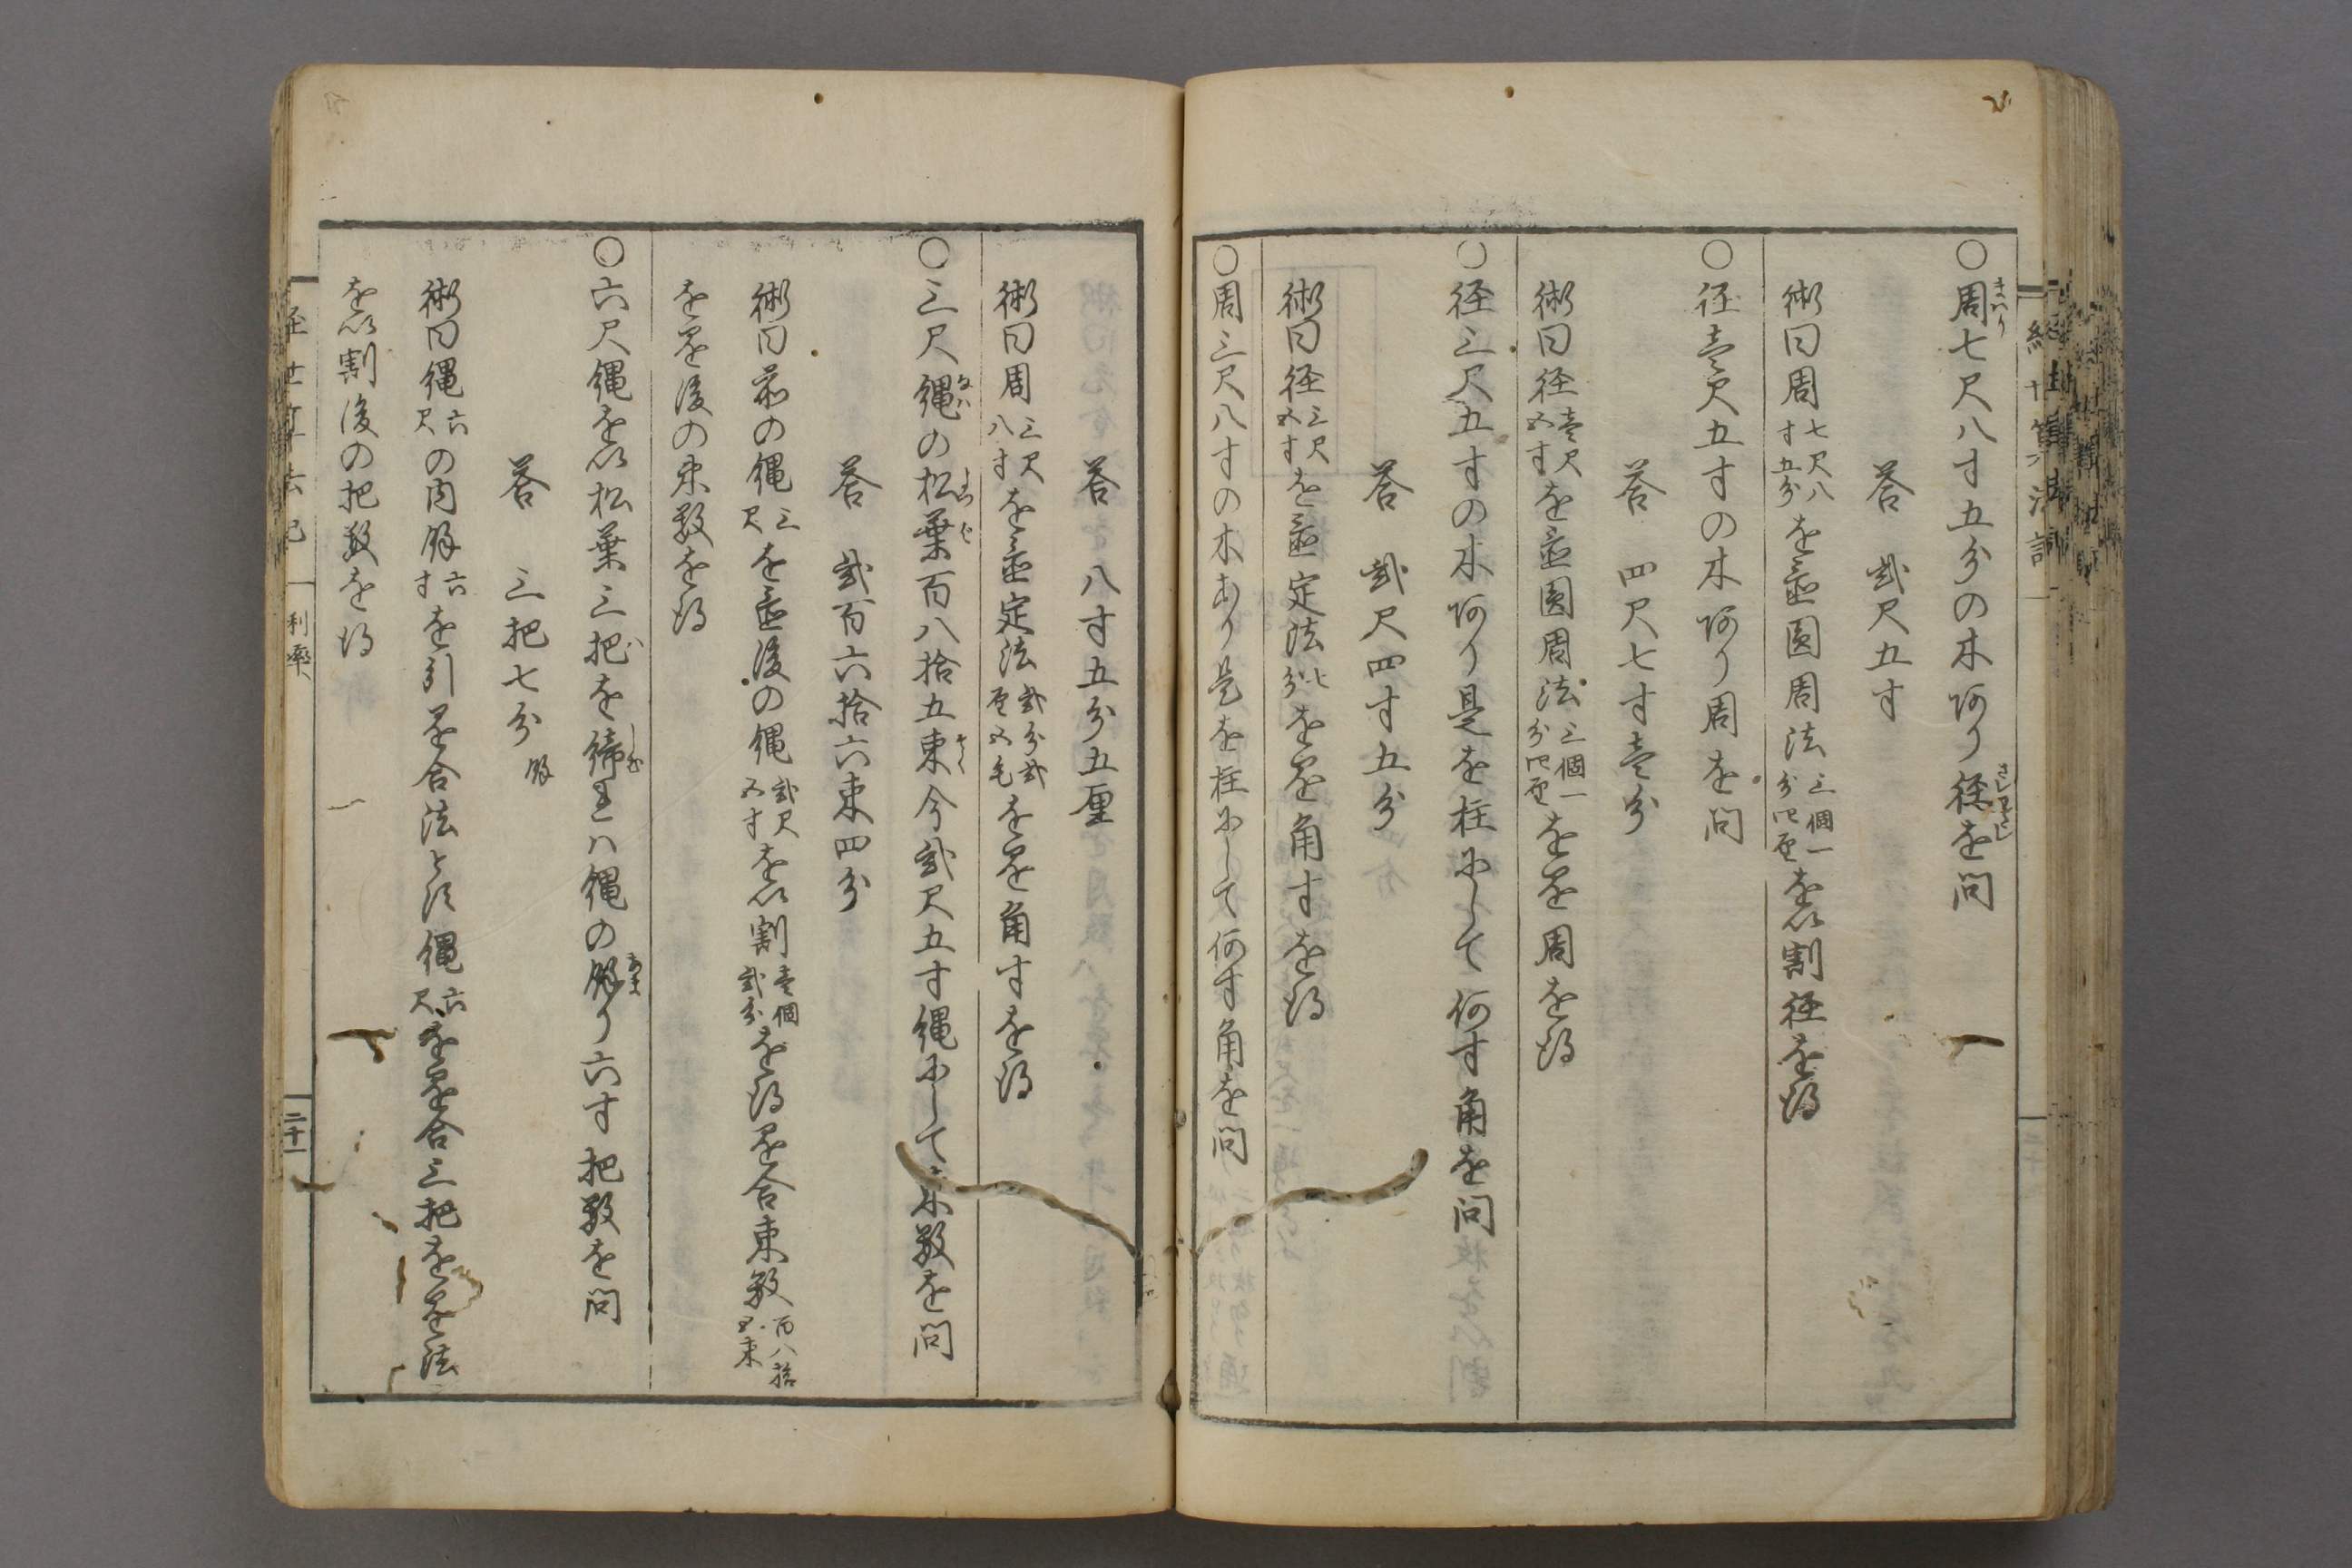 ○周七尺八寸五分の木阿り径を問
答 弐尺五寸
術曰周七尺八寸五分を置圓周法三個一分四厘を以割径を得
○径壱尺五寸の木阿り周を問
答 四尺七寸壱分
術曰径壱尺五寸を置圓周法三個一分四厘を乗周を得
○径三尺五寸の木阿り是を柱にして何寸角を問
答 弐尺四寸五分
術曰径三尺五寸を置定法七分を乗角寸を得
○周三尺八寸の木あり是を柱にして何寸角を問
答 八寸五分五厘
術曰周三尺八寸を置定法弐分弐厘五毛を乗角寸を得
○三尺縄の松葉百八拾五束今弐尺五寸縄にして束数を問
答 弐百六拾六束四分
術曰前の縄三尺を置後の縄弐尺五寸を以割壱個弐分を得乗合束数百八拾五束
を乗後の束数を得
○六尺縄を以松葉三把を締王ハ縄の餘り六寸把数を問
答 三把七分餘
術曰縄六尺の内餘六寸を引乗合法とす縄六尺を乗合三把をを法
を以割後の把数を得
利率
二十一